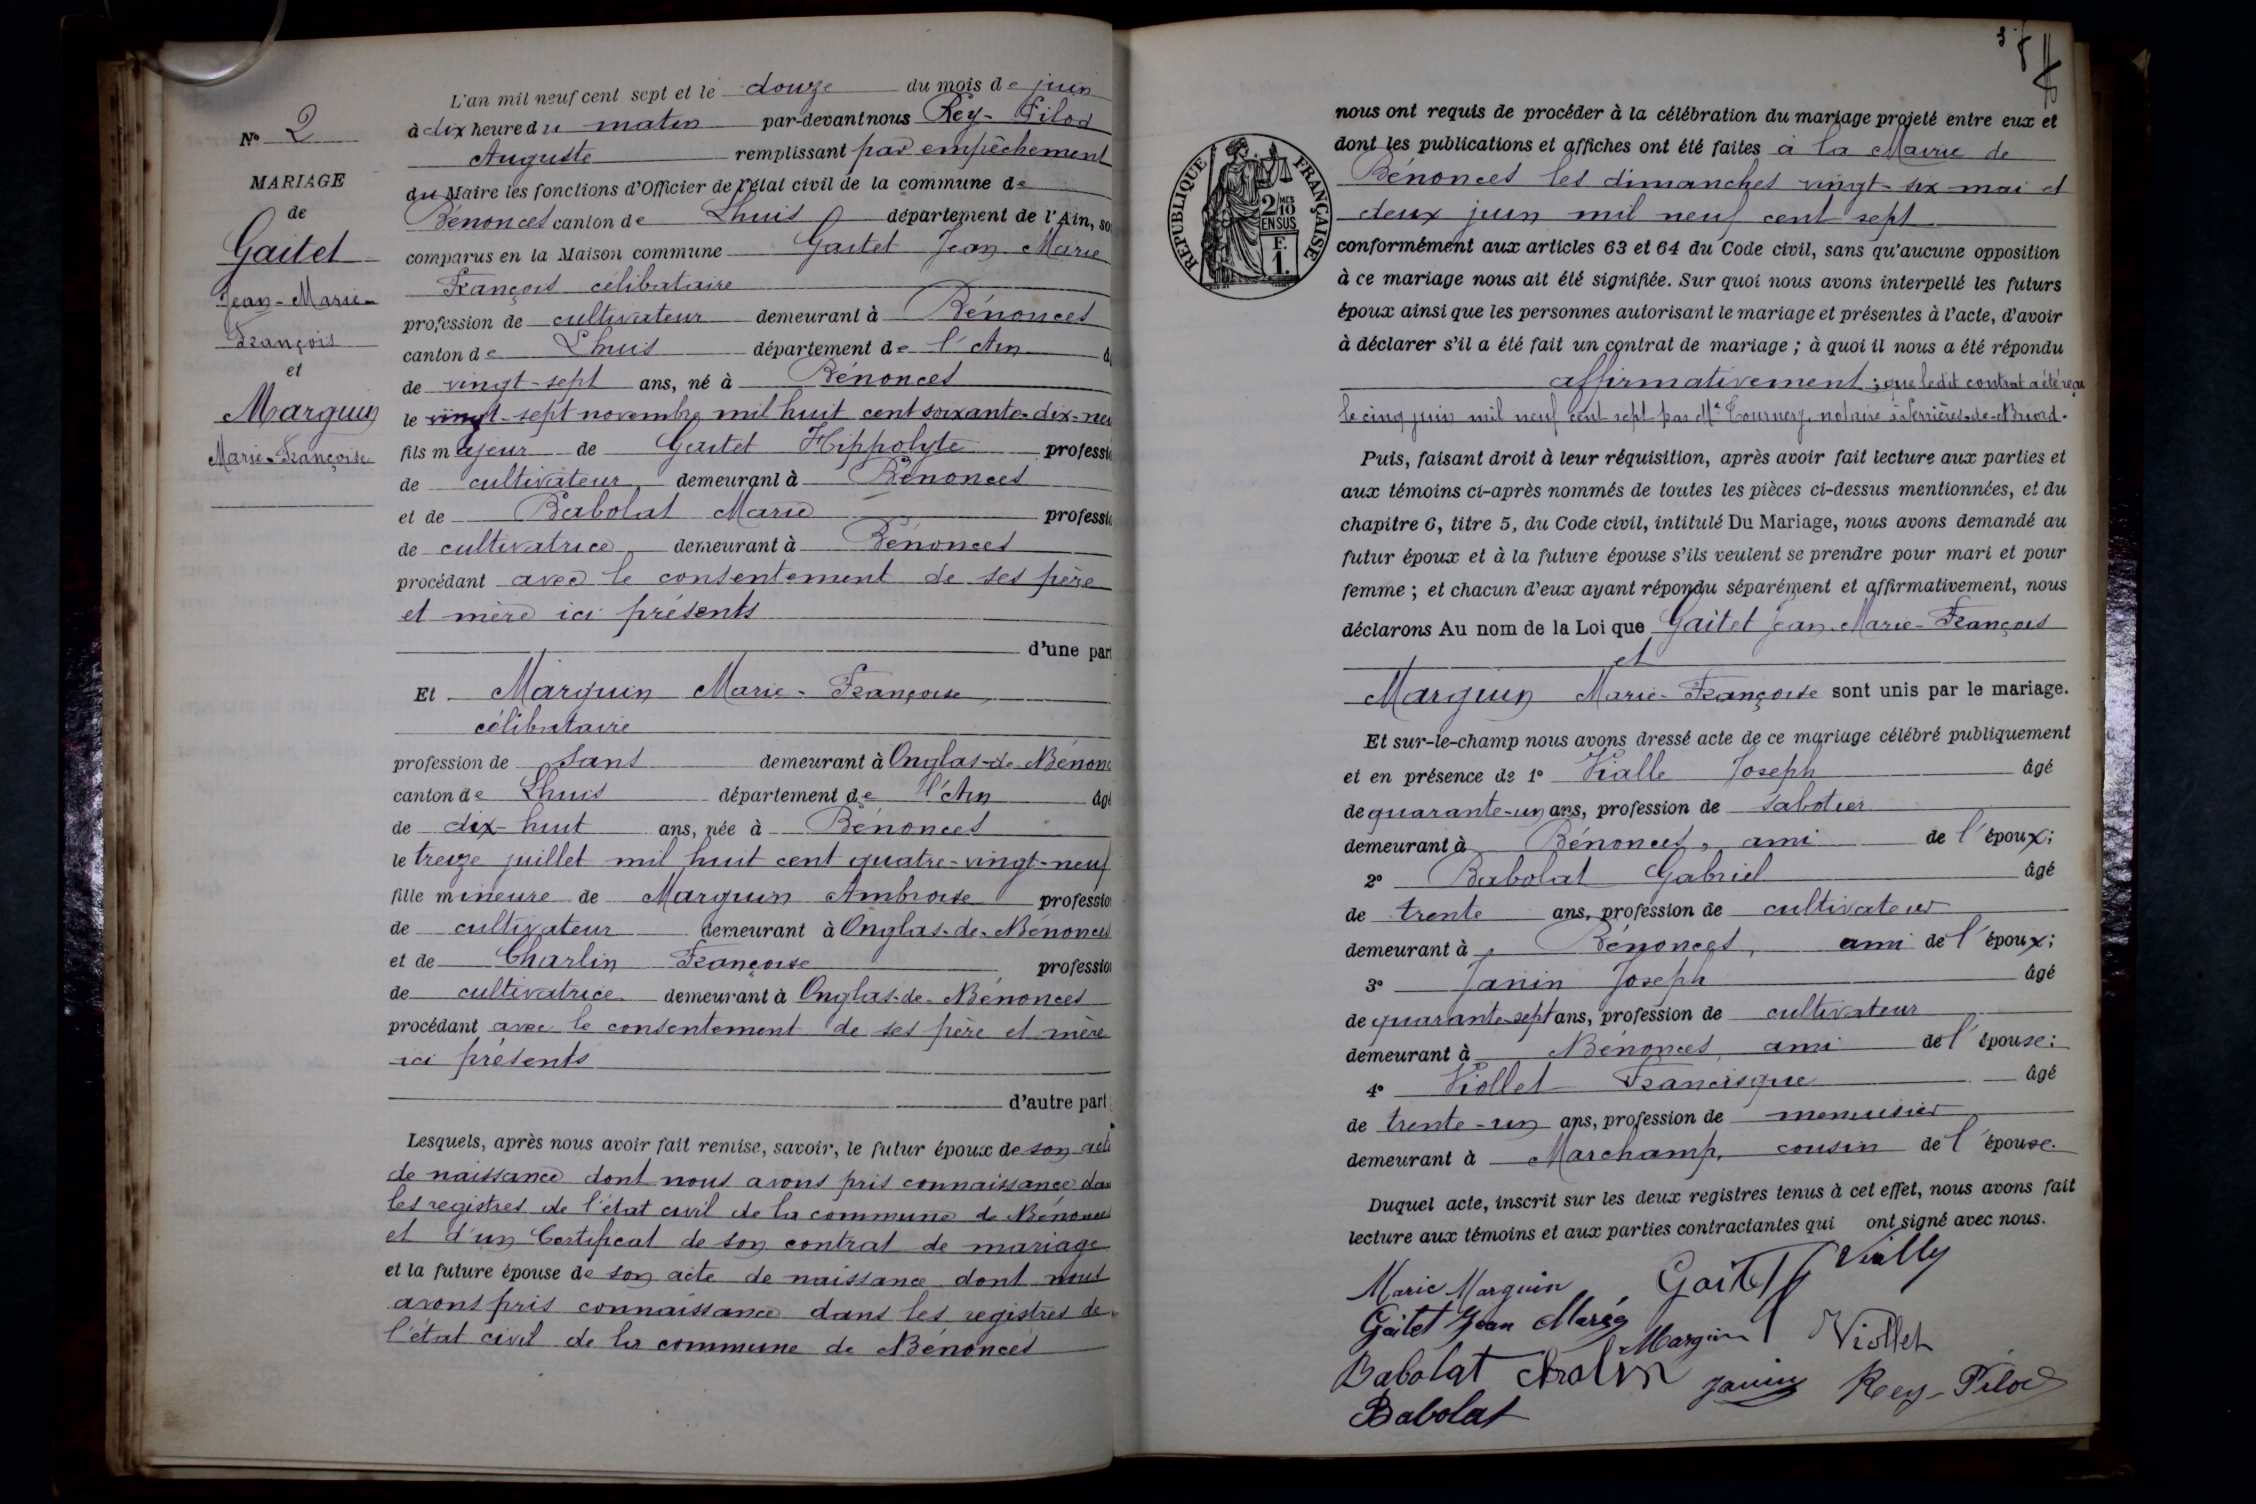 N° 2
MARIAGE
de
Gaitet
Jean-Marie-
François
et
Marguin
Marie-Françoise
L'an mil neuf cent sept et le douze du mois de juin
à dix heure du matin par-devant nous Rey-Pilod
Auguste remplissant par empêchement
du Maire les fonctions d'Officier de l'état civil de la commune de
Bénonces canton de Lhuis département de l'Ain, so
comparus en la Maison commune Gaitet Jean Marie
François célibataire
profession de cultivateur demeurant à Bénonces
canton de Lhuis département de l'Ain
de vingt-sept ans, né à Bénonces
le vingt-sept novembre mil huit cent soixante-dix-neu
fils majeur de Gaitet Hippolyte professio
de cultivateur demeurant à Bénonces
et de Babolat Marie professio
de cultivatrice demeurant à Bénonces
procédant avec le consentement de ses père
et mère ici présents
d'une part
Et Marguin Marie-Françoise
célibataire
profession de sans demeurant à Onglas-de-Bénonc
canton de Lhuis département de l'Ain âgé
de dix-huit ans, née à Bénonces
le treize juillet mil huit cent quatre-vingt-neuf
fille mineure de Marguin Ambroise profession
de cultivateur demeurant à Onglas-de-Bénonces
et de Charlin Françoise profession
de cultivatrice demeurant à Onglas-de-Bénonces
procédant avec le consentement de ses père et mère
ici présents
d'autre part
Lesquels, après nous avoir fait remise, savoir, le futur époux de son acte
de naissance dont nous avons pris connaissance dans
les registres de l'état civil de la commune de Bénonces
et d'un Certificat de son contrat de mariage
et la future épouse de son acte de naissance dont nous
avons pris connaissance dans les registres de
l'état civil de la commune de Bénonces
RÉPUBLIQUE FRANÇAISE
2/10 MES
EN SUS
F.
1.
nous ont requis de procéder à la célébration du mariage projeté entre eux et
dont les publications et affiches ont été faites à la Mairie de
Bénonces les dimanches vingt-six mai et
deux juin mil neuf cent sept
conformément aux articles 63 et 64 du Code civil, sans qu'aucune opposition
à ce mariage nous ait été signifiée. Sur quoi nous avons interpellé les futurs
époux ainsi que les personnes autorisant le mariage et présentes à l'acte, d'avoir
à déclarer s'il a été fait un contrat de mariage ; à quoi il nous a été répondu
affirmativement ; que ledit contrat a été reçu
le cinq juin mil neuf cent sept par Me Tournery, notaire à Serrières-de-Briord.
Puis, faisant droit à leur réquisition, après avoir fait lecture aux parties et
aux témoins ci-après nommés de toutes les pièces ci-dessus mentionnées, et du
chapitre 6, titre 5, du Code civil, intitulé Du Mariage, nous avons demandé au
futur époux et à la future épouse s'ils veulent se prendre pour mari et pour
femme ; et chacun d'eux ayant répondu séparément et affirmativement, nous
déclarons Au nom de la Loi que Gaitet Jean-Marie-François
et
Marguin Marie-Françoise sont unis par le mariage.
Et sur-le-champ nous avons dressé acte de ce mariage célébré publiquement
et en présence de 1° Vialle Joseph âgé
de quarante-un ans, profession de sabotier
demeurant à Bénonces, ami de l'époux;
2° Babolat Gabriel âgé
de trente ans, profession de cultivateur
demeurant à Bénonces, ami de l'époux;
3° Janin Joseph âgé
de quarante-sept ans, profession de cultivateur
demeurant à Bénonces ami de l'épouse;
4° Viollet Francisque âgé
de trente-un ans, profession de menuisier
demeurant à Marchamp, cousin de l'épouse.
Duquel acte, inscrit sur les deux registres tenus à cet effet, nous avons fait
lecture aux témoins et aux parties contractantes qui ont signé avec nous.
Marie Marguin Gaitet
Gaitet Jean Marie Marguin Viollet
Babolat Janin Rey-Pilod
Babolat